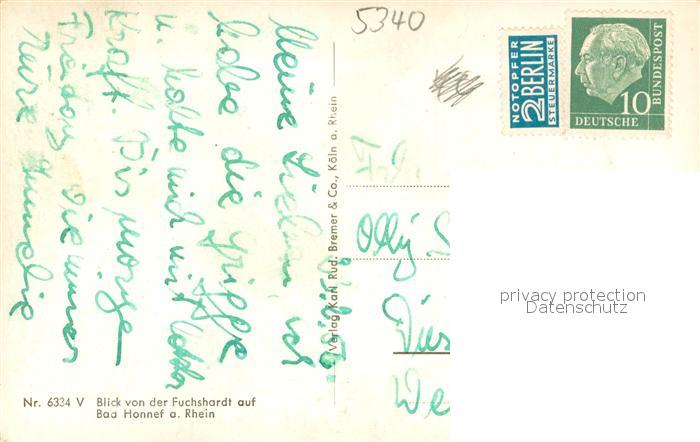 5340
NOTOPFER
2 BERLIN
STEUERMARKE
10
DEUTSCHE
BUNDESPOST
Meine Lieben, ich
habe die Grippe
u. halte mich mit
Kraft. Bis morgen
Freitag Die immer
Verlag Karl Rud. Bremer & Co., Köln a. Rhein
Olly
Düs
We
privacy protection
Datenschutz
Nr. 6334 V Blick von der Fuchshardt auf
Bad Honnef a. Rhein